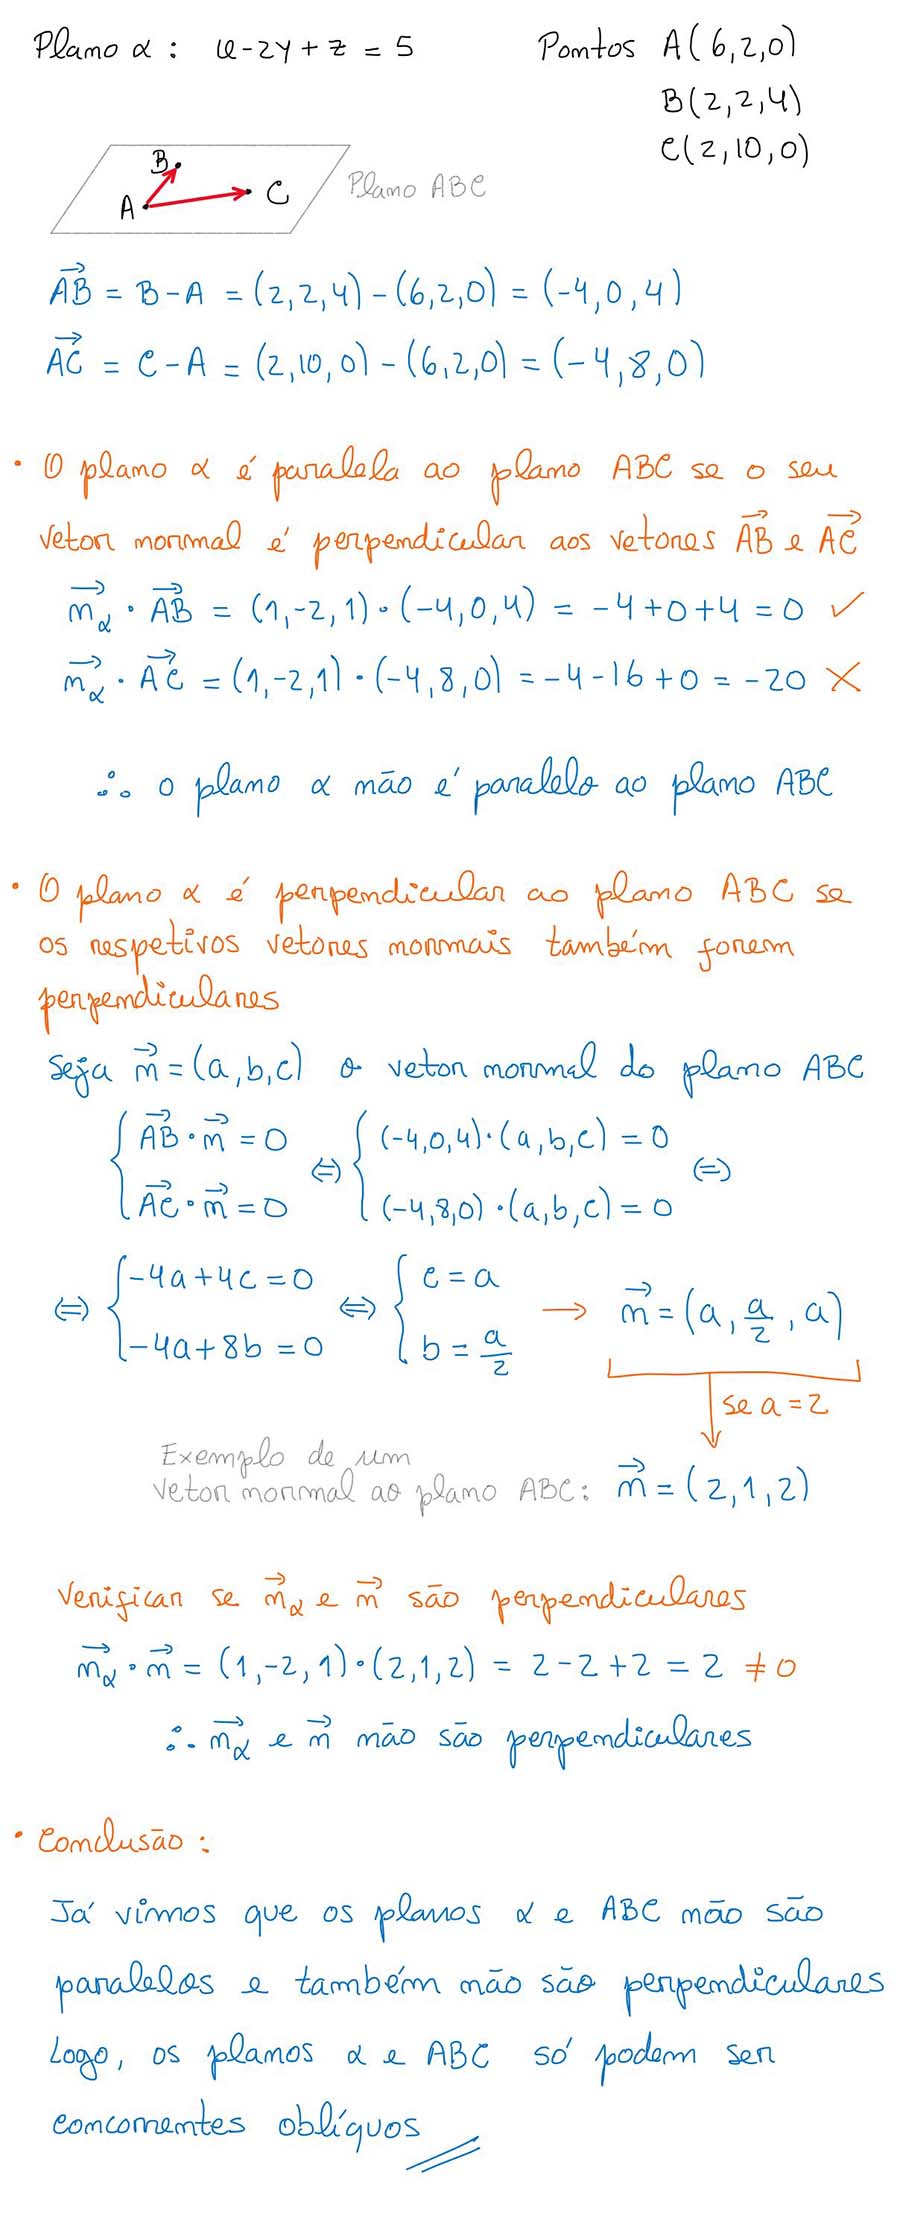 Plano α : x-2y+z = 5
Pontos A(6,2,0)
B(2,2,4)
C(2,10,0)
B
A
C
Plano ABC
AB⃗ = B-A = (2,2,4)-(6,2,0) = (-4,0,4)
AC⃗ = C-A = (2,10,0)-(6,2,0) = (-4,8,0)
• O plano α é paralela ao plano ABC se o seu
vetor normal é perpendicular aos vetores AB⃗ e AC⃗
n⃗α · AB⃗ = (1,-2,1)·(-4,0,4) = -4+0+4 = 0 ✓
n⃗α · AC⃗ = (1,-2,1)·(-4,8,0) = -4-16+0 = -20 X
∴ o plano α não é paralelo ao plano ABC
• O plano α é perpendicular ao plano ABC se
os respetivos vetores normais também forem
perpendiculares
Seja n⃗ = (a,b,c) o vetor normal do plano ABC
{ AB⃗·n⃗ = 0 ⇔ { (-4,0,4)·(a,b,c) = 0 ⇔
AC⃗·n⃗ = 0 (-4,8,0)·(a,b,c) = 0
⇔ { -4a+4c = 0 ⇔ { c = a → n⃗ = (a, a/2, a)
-4a+8b = 0 b = a/2
se a = 2
Exemplo de um
vetor normal ao plano ABC: n⃗ = (2,1,2)
Verificar se n⃗α e n⃗ são perpendiculares
n⃗α · n⃗ = (1,-2,1)·(2,1,2) = 2-2+2 = 2 ≠ 0
∴ n⃗α e n⃗ não são perpendiculares
• Conclusão :
Já vimos que os planos α e ABC não são
paralelos e também não são perpendiculares
Logo, os planos α e ABC só podem ser
concorrentes oblíquos